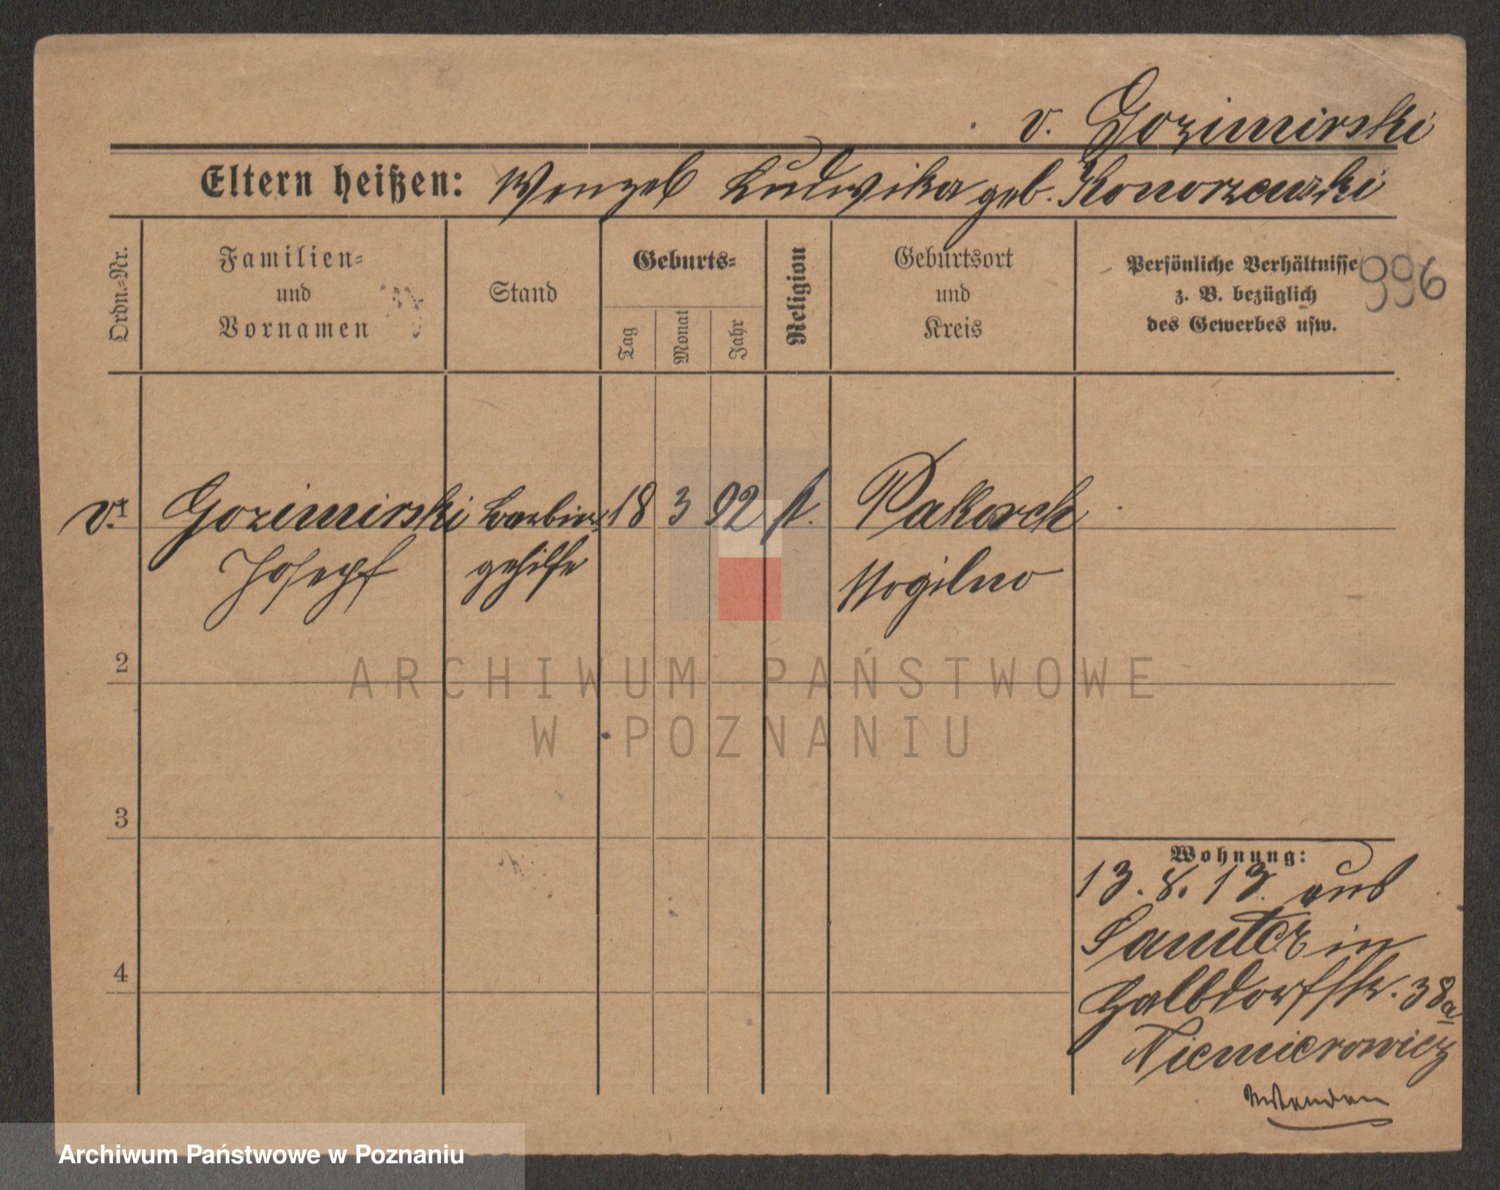 v. Gozimirski
Eltern heißen: Wenzel Ludwika geb. Konorzewski
Ordn.-Nr.
Familien-
und
Vornamen
Stand
Geburts-
Tag
Monat
Jahr
Religion
Geburtsort
und
Kreis
Persönliche Verhältnisse
z. B. bezüglich
des Gewerbes usw.
996
v. 1 Gozimirski Barbier 18 3 92 k. Pakosch
Josepf gehilfe Mogilno
2
3
4
Wohnung:
13. 8. 13. aus
Samter in
Halbdorfstr. 38a
Niemierowicz
Wenden
ARCHIWUM PAŃSTWOWE
W POZNANIU
Archiwum Państwowe w Poznaniu